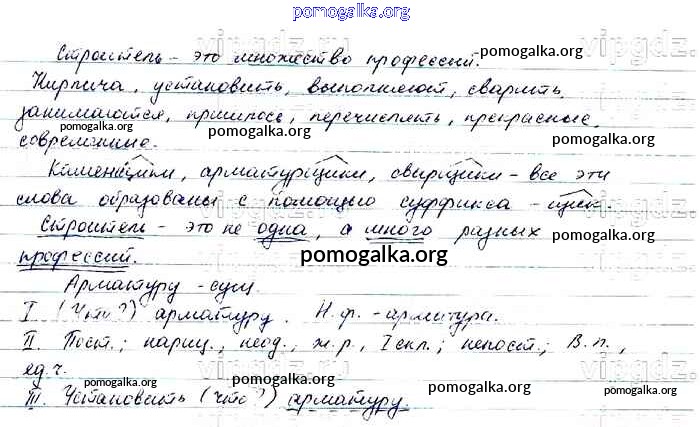 pomogalka.org
Строитель - это множество профессий.
pomogalka.org
Кирпича, установить, выполняют, сварить,
занимаются, пришлось, перечислять, прекрасные,
pomogalka.org pomogalka.org
современные.
Каменщики, арматурщики, сварщики - все эти
слова образованы с помощью суффикса - щик.
Строитель - это не одна, а много разных
pomogalka.org
профессий.
pomogalka.org
Арматуру - сущ.
I (Что?) арматуру. Н.ф. - арматура.
II. Пост.; нариц., неод., ж.р., I скл.; непост.; В.п.,
ед.ч.
pomogalka.org pomogalka.org
III. Установить (что?) арматуру.
pomogalka.org